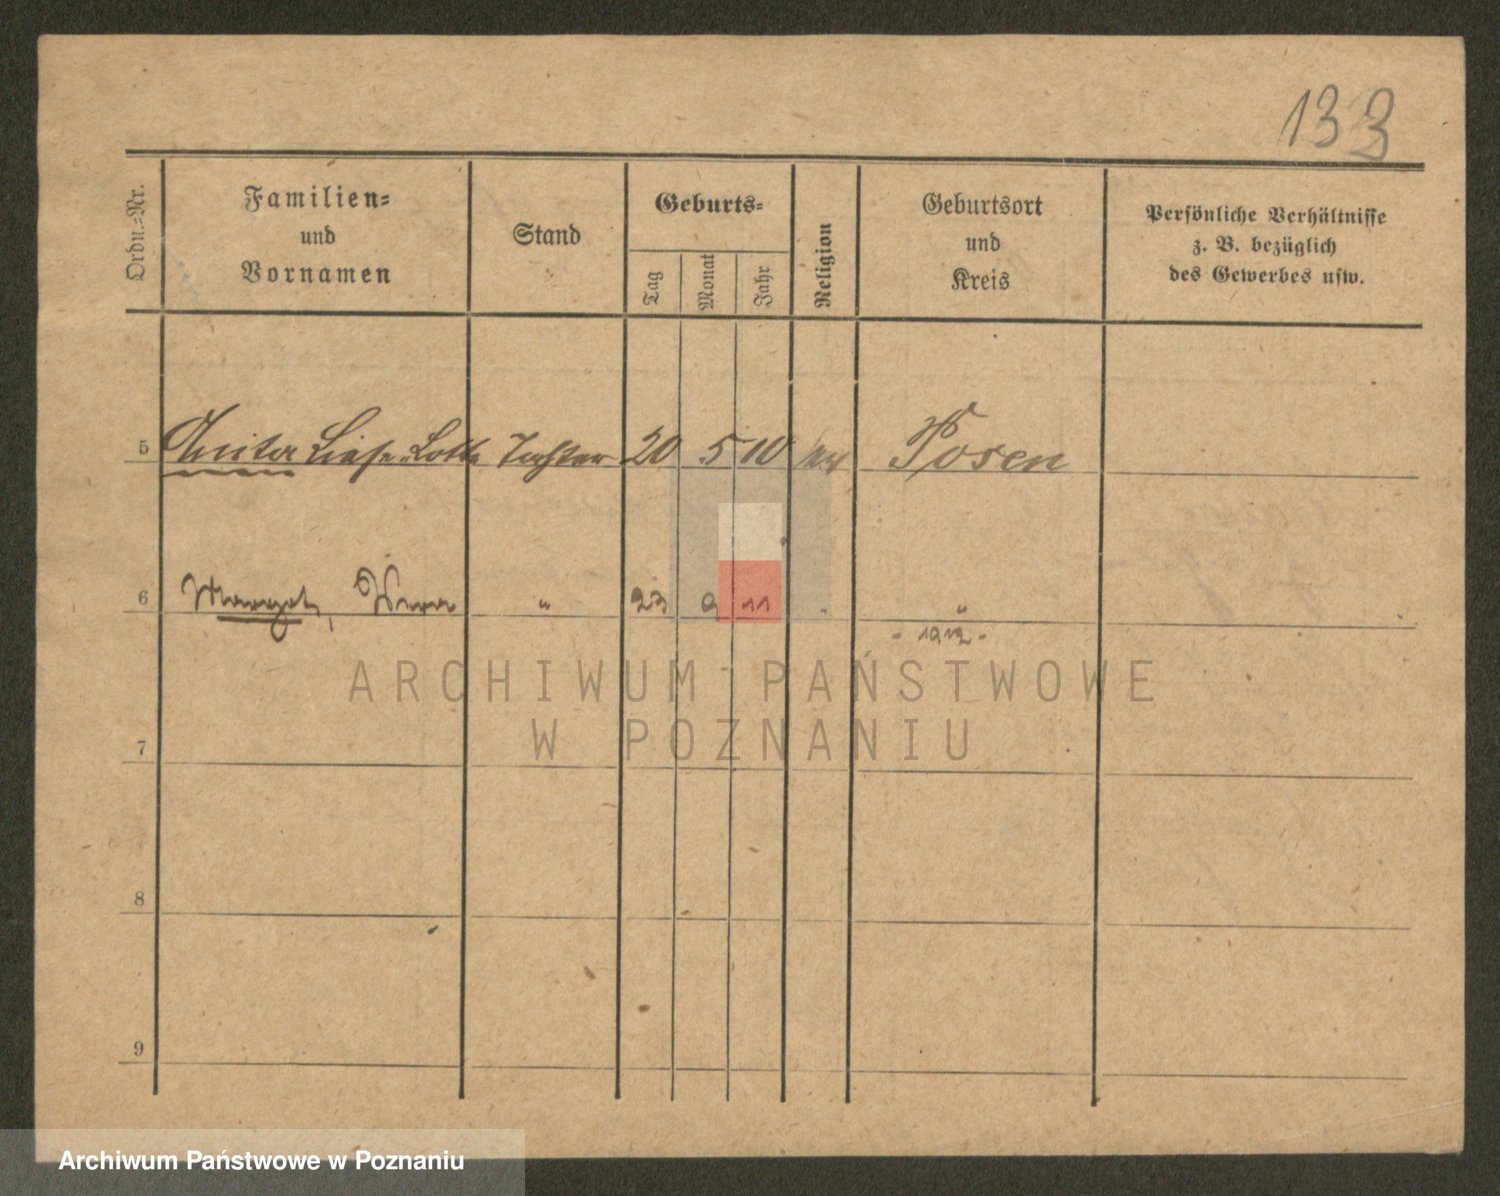 133
Ordn.-Nr.
Familien-
und
Vornamen
Stand
Geburts-
Tag
Monat
Jahr
Religion
Geburtsort
und
Kreis
Persönliche Verhältnisse
z. B. bezüglich
des Gewerbes usw.
5 Anita Liese-Lotte Tochter 20 5 10 Posen
6 Margot, " 23 9 11 " "
7
8
9
ARCHIWUM PAŃSTWOWE
W POZNANIU
Archiwum Państwowe w Poznaniu